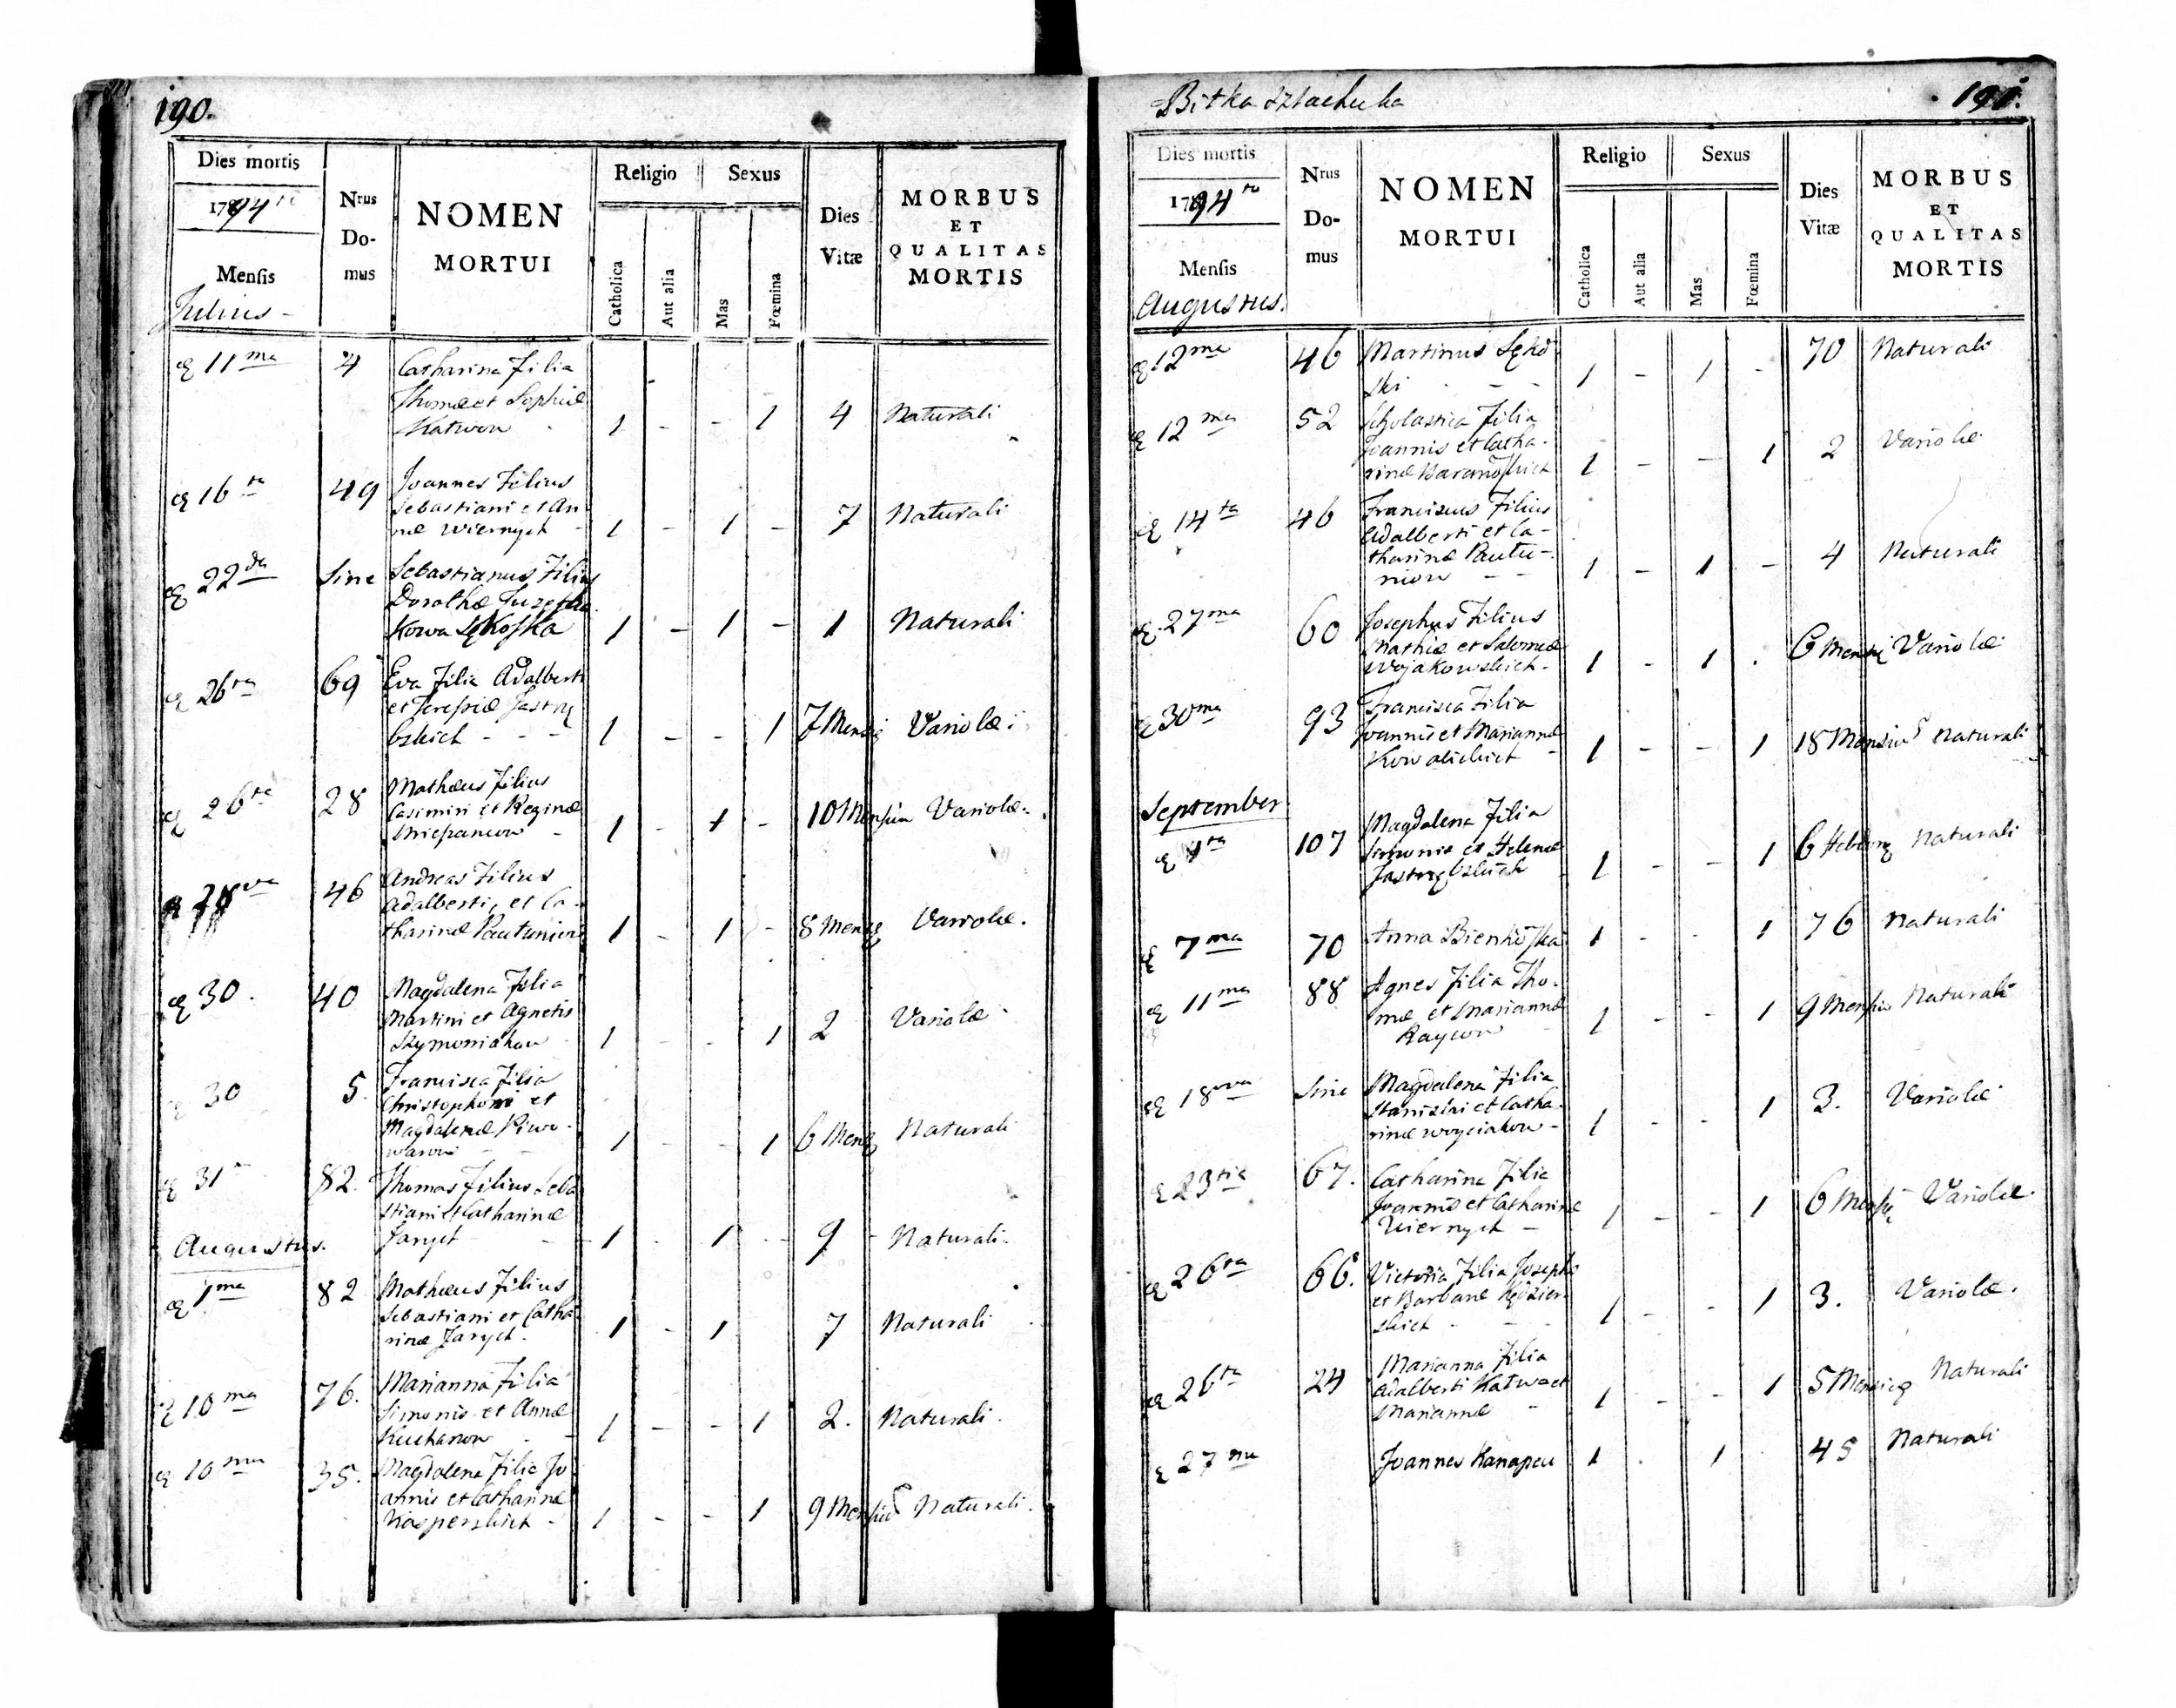 190.
Dies mortis
1794to
Mensis
Julius -
Nrus
Do-
mus
NOMEN
MORTUI
Religio
Catholica
Aut alia
Sexus
Mas
Fœmina
Dies
Vitæ
MORBUS
ET
QUALITAS
MORTIS
11ma 4 Catharina Filia
Thomæ et Sophiæ
Katwow 1 - - 1 4 Naturali
16ta 49 Joannes Filius
Sebastiani et An
næ Wiernych 1 - 1 - 7 Naturali
22da Sine Sebastianus Filius
Dorothæ
kowa 1 - 1 - 1 Naturali
26ta 69 Eva Filia Adalberti
et Teressiæ Jastrzę
bskich - - - 1 - - 1 7 Variolæ
26ta 28 Mathæus Filius
Casimiri et Reginæ
1 - 1 - 10 Mensiu Variolæ.
28va 46 Andreas Filius
Adalberti, et Ca-
tharinæ 1 - 1 - 8 Variolæ.
30. 40 Magdalena Filia
Martini et Agnetis
Szymoniakow 1 - - 1 2 Variolæ
30 5. Francisca Filia
Christophori et
Magdalenæ Piwo-
warow 1 - - 1 6 Naturali
31 82. Thomas Filius Seba
stiani et Catharinæ
Jarych 1 - 1 - 9 Naturali.
Augustus.
1ma 82 Mathæus Filius
Sebastiani et Catha
rinæ Jarych. 1 - 1 7 Naturali
10ma 76. Marianna Filia
Simonis et Annæ
Kucharow 1 - - 1 2. Naturali.
10ma 35. Magdalena Filia Jo
annis et Catharinæ
Kasperskich - 1 - - 1 9 Naturali.
Bitka Szlachecka
191.
Dies mortis
1794to
Mensis
Augustus.
Nrus
Do-
mus
NOMEN
MORTUI
Religio
Catholica
Aut alia
Sexus
Mas
Fœmina
Dies
Vitæ
MORBUS
ET
QUALITAS
MORTIS
12ma 46 Martinus
ski - - - 1 - 1 - 70 Naturali
12ma 52 Scholastica Filia
Joannis et Catha-
rinæ 1 - - 1 2 Variolæ
14ta 46 Franciscus Filius
Adalberti et Ca-
tharinæ
1 - 1 - 4 Naturali
27ma 60 Josephus Filius
Mathiæ et Salomeæ
Wojakowskich - 1 - 1 . 6 Variolæ
30ma 93 Francisca Filia
Joannis et Mariannæ
Kowalickich 1 - - 1 18 Naturali
September
107 Magdalena Filia
Simonis et Helenæ
Jastrzębskich 1 - - 1 6 Naturali
7ma 70 Anna 1 - - 1 76 Naturali
11ma 88 Agnes Filia Tho-
mæ et Mariannæ
Raycow 1 - - 1 9 Naturali
18va Sine Magdalena Filia
et Catha-
rinæ Woyciakow - 1 - - 1 3. Variolæ
23tia 67. Catharina Filia
Joannis et Catharinæ
Wiernych - 1 - - 1 6 Variolæ.
26ta 66. Victoria Filia Josephi
et Barbaræ Kędzier
skich - 1 - - 1 3. Variolæ.
26ta 24 Marianna Filia
Adalberti Katwa et
Mariannæ 1 - - 1 5 Naturali
27ma Joannes 1 . 1 45 Naturali